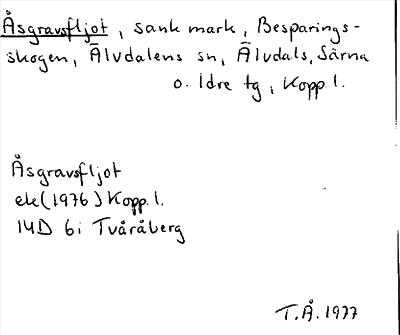 Åsgravsfljot, sank mark, Besparings-
skogen, Älvdalens sn, Älvdals, Särna
o. Idre tg, Kopp. l.
Åsgravsfljot
ek(1976) Kopp. l.
14D 6i Tvåråberg
T.Å. 1977